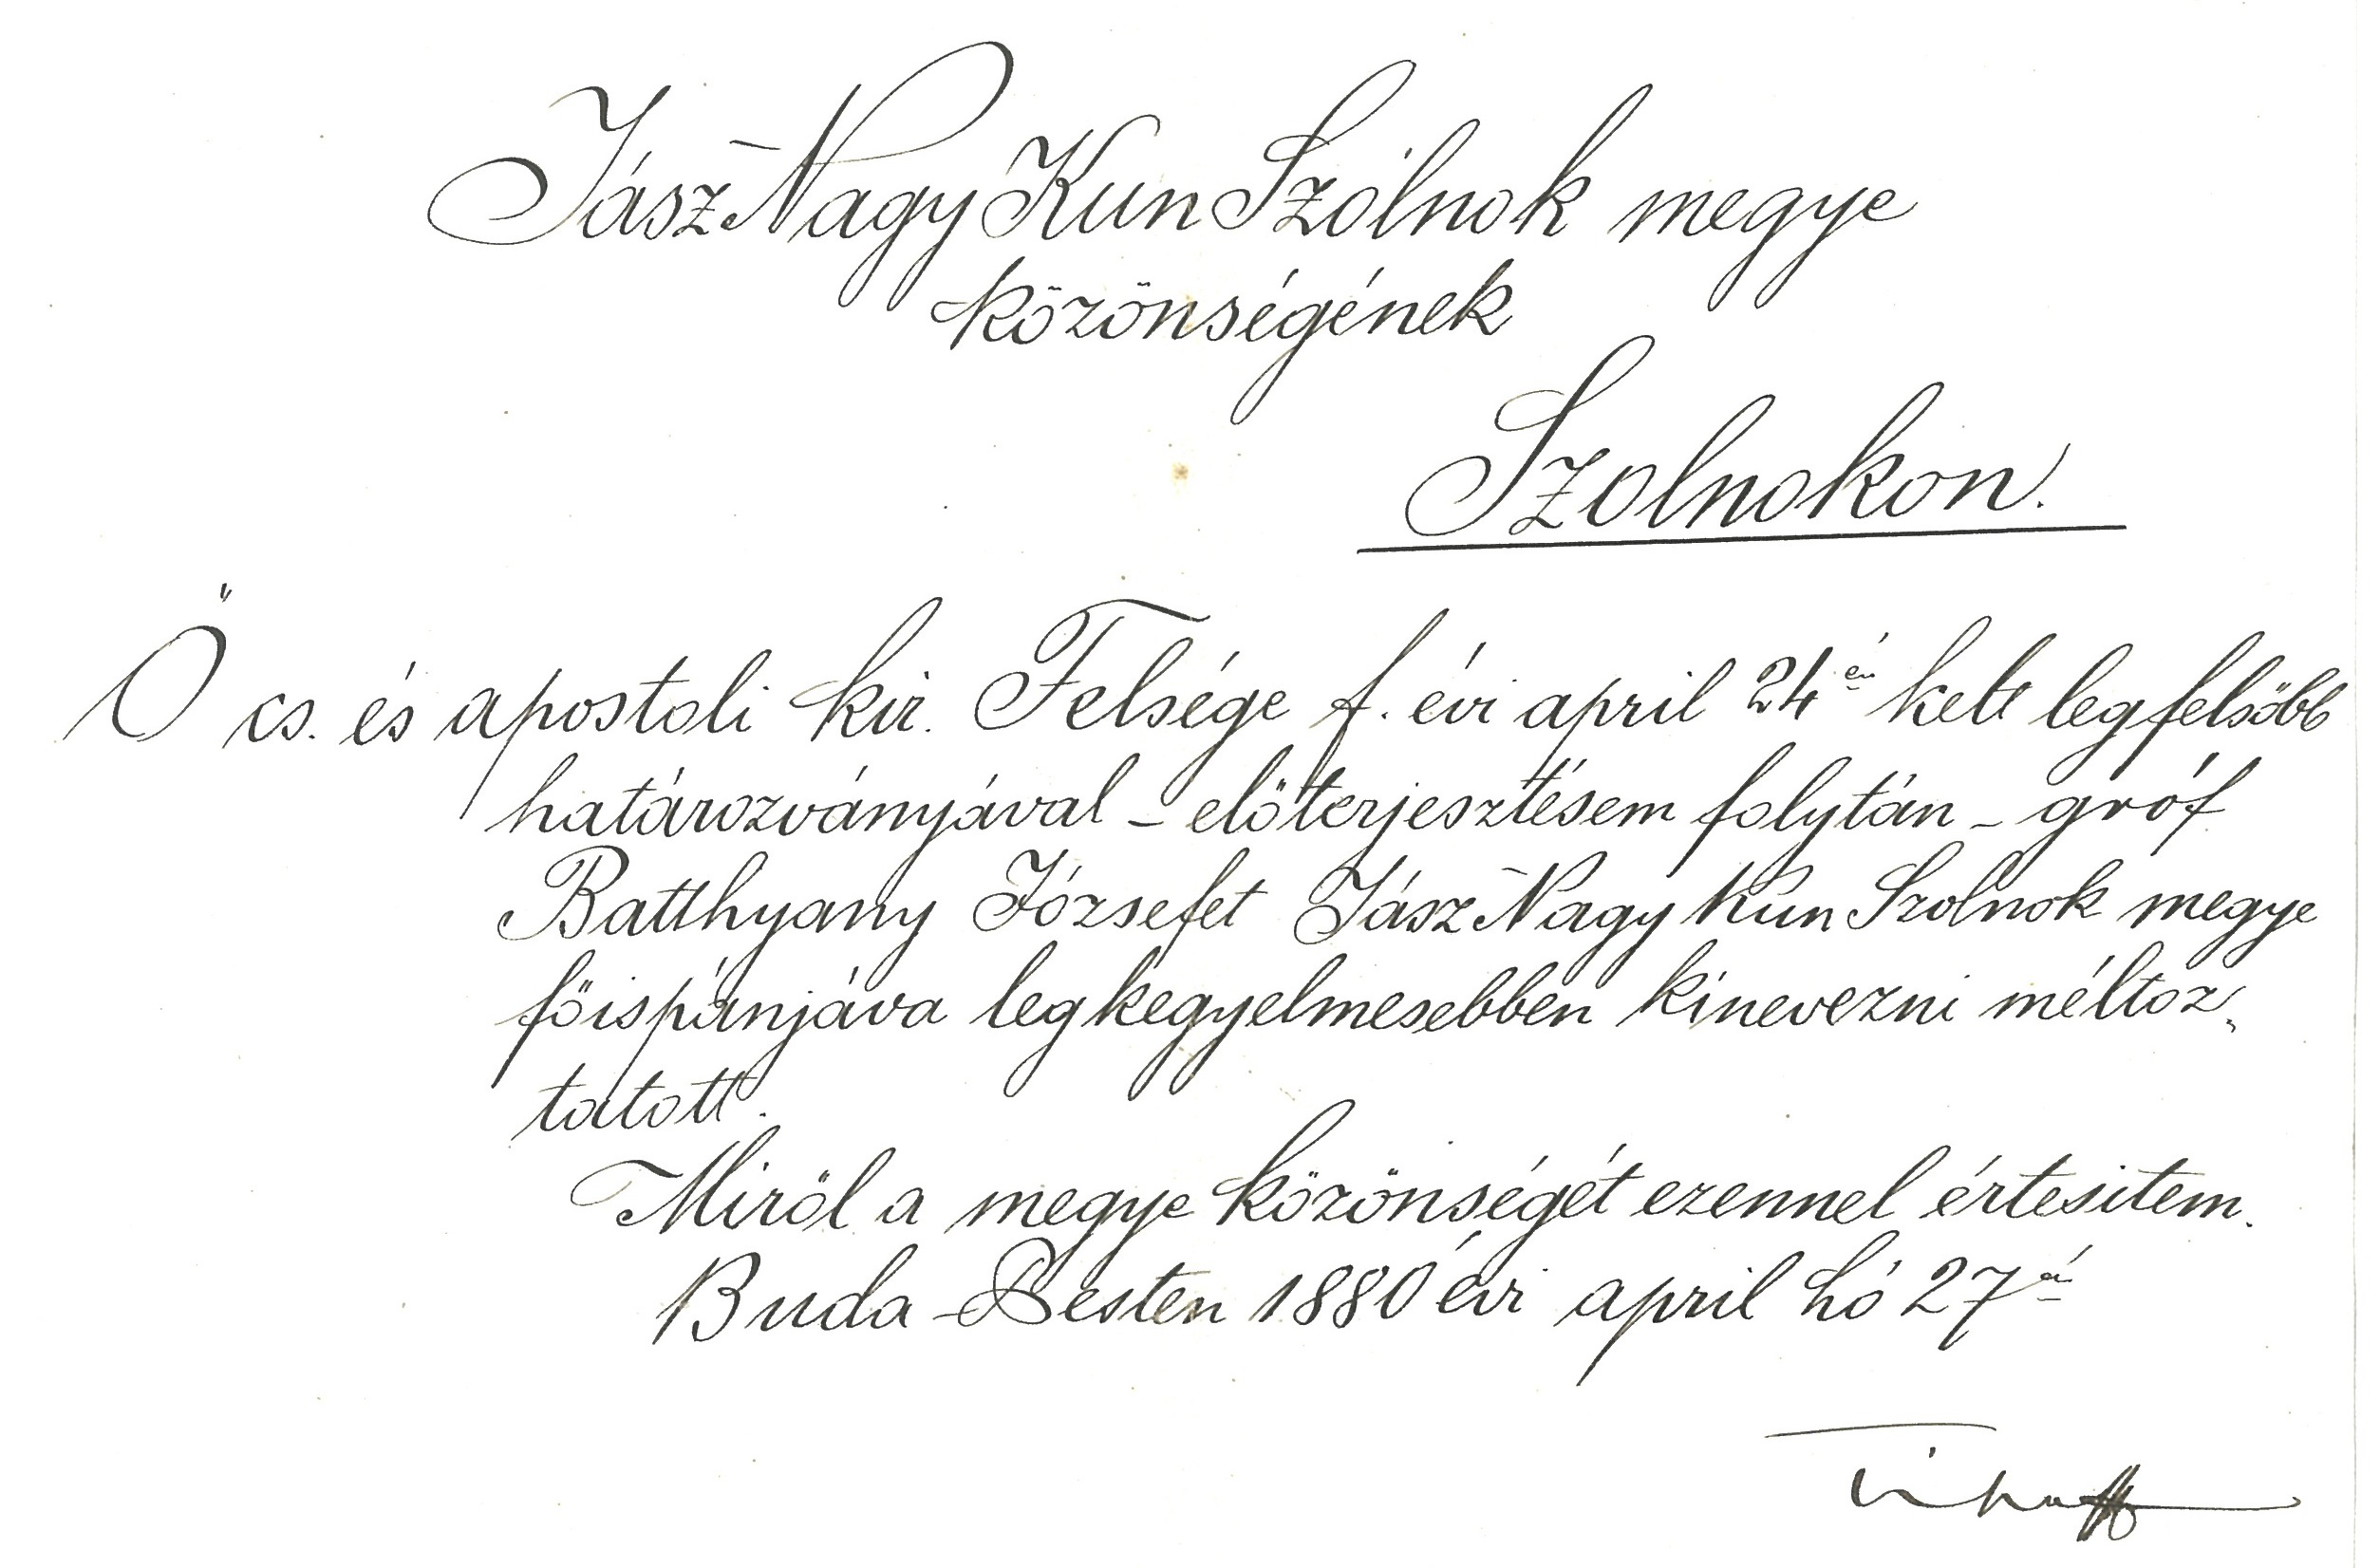 Jász Nagy Kun Szólnok megye
közönségének
Szolnokon.
Ő cs. és apostoli kir. Felsége f. évi april 24én kelt legfelsőbb
határozványával – előterjesztésem folytán – gróf
Batthyany Józsefet Jász Nagy Kun Szolnok megye
főispánjáva legkegyelmesebben kinevezni méltoz„
tatott.
Miről a megye közönségét ezennel értesitem.
Buda-Pesten 1880 évi april hó 27én